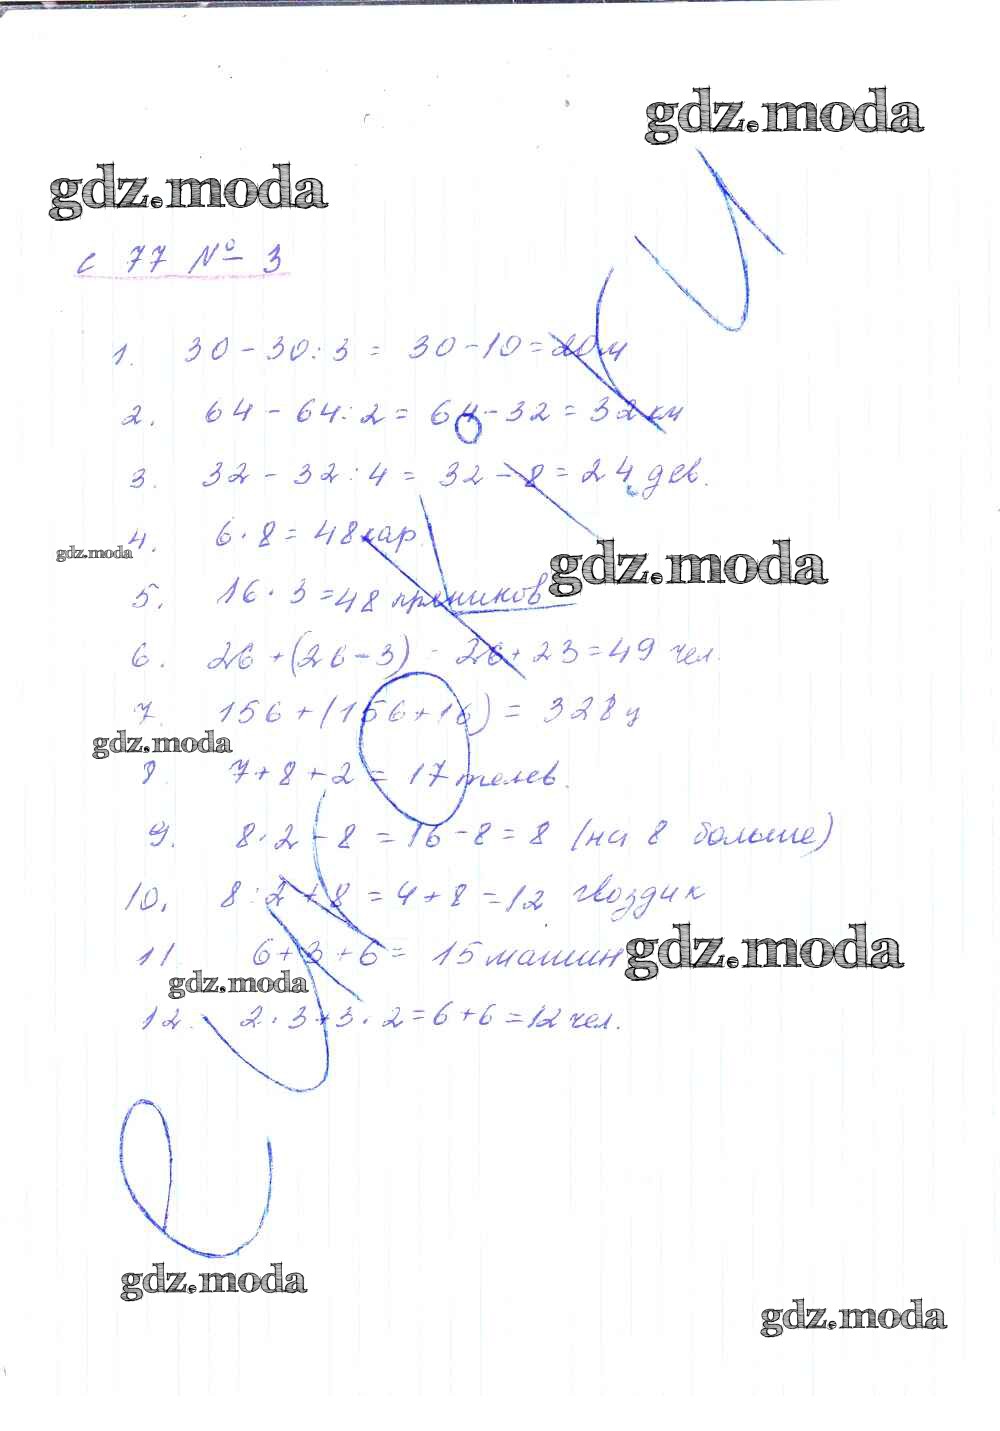 gdz.moda
gdz.moda
с 77 № 3
1. 30 - 30 : 3 = 30 - 10 = 20 м
2. 64 - 64 : 2 = 64 - 32 = 32 км
3. 32 - 32 : 4 = 32 - 8 = 24 дев.
4. 6 · 8 = 48 кар.
gdz.moda
gdz.moda
5. 16 · 3 = 48 пряников
6. 26 + (26 - 3) = 26 + 23 = 49 чел.
7. 156 + (156 + 16) = 328 ц
gdz.moda
8. 7 + 8 + 2 = 17 телев.
9. 8 · 2 - 8 = 16 - 8 = 8 (на 8 больше)
10. 8 : 2 + 8 = 4 + 8 = 12 гвоздик
11. 6 + 3 + 6 = 15 машин
gdz.moda
gdz.moda
12. 2 · 3 + 3 · 2 = 6 + 6 = 12 чел.
gdz.moda
gdz.moda